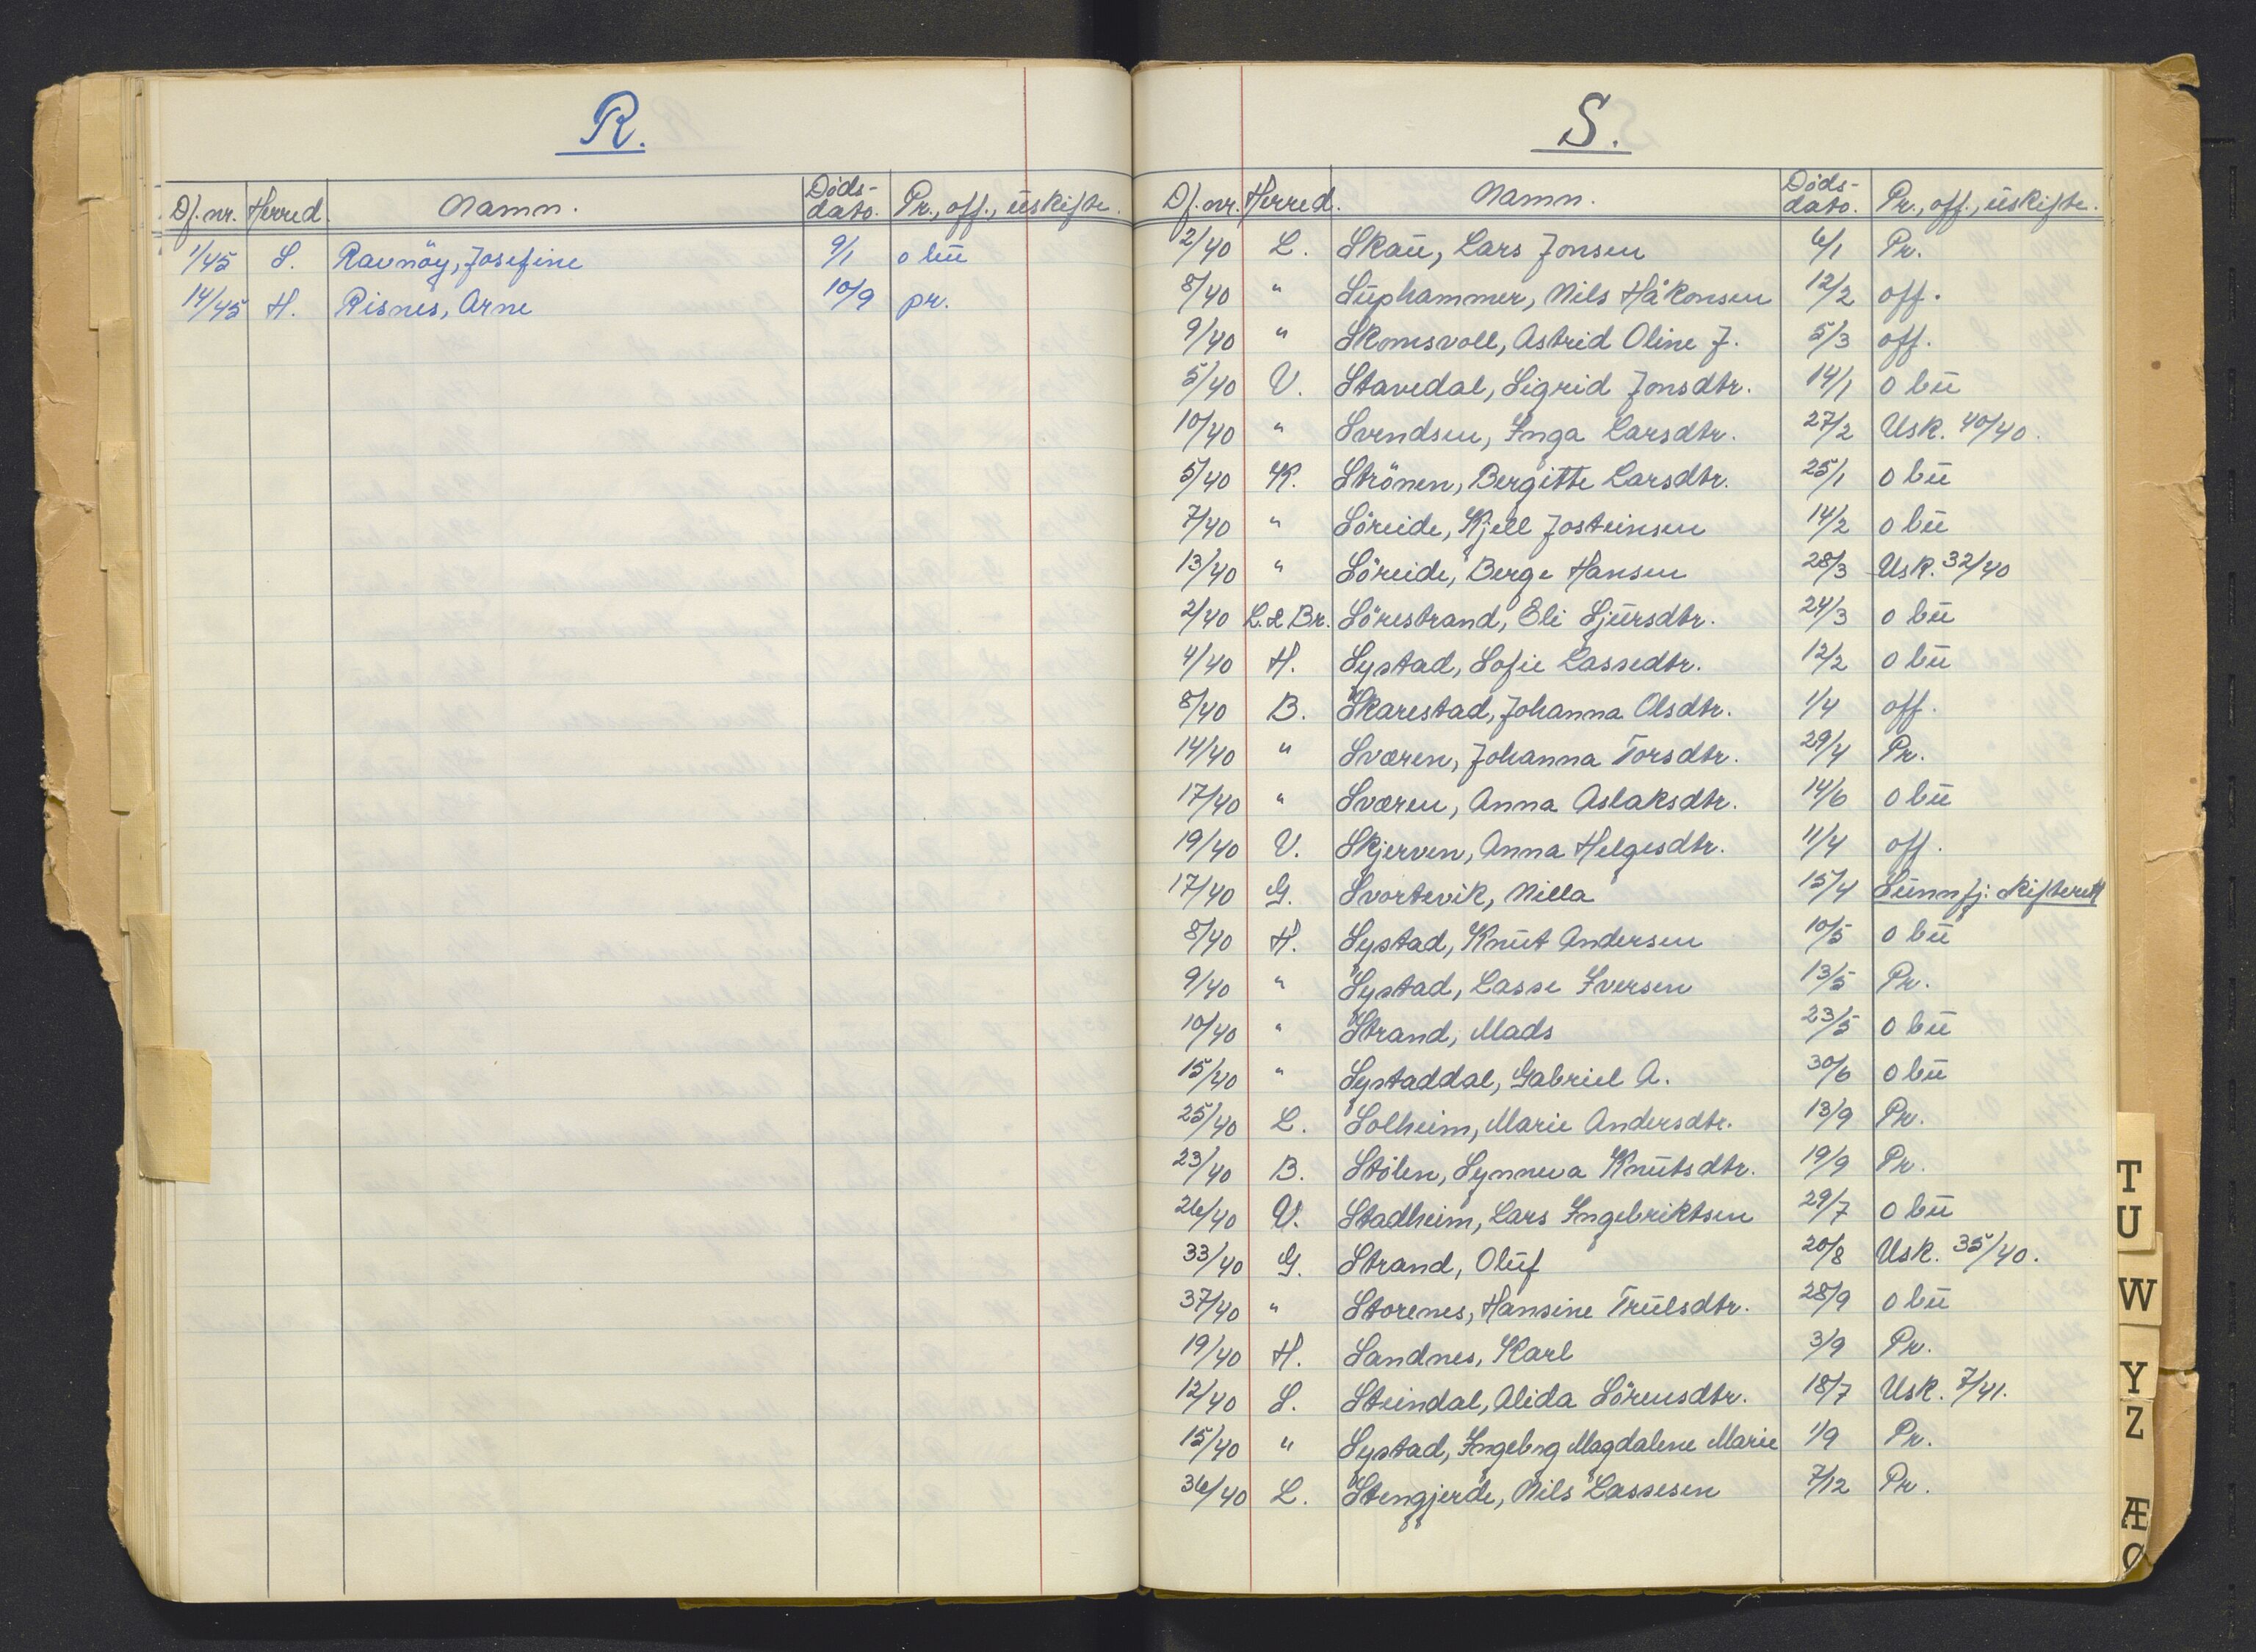 R.
Df. nr. Herred. Namn. Dødsdato. Pr., off., uskifte.
1/45 S. Ravnöy, Josefine 9/1 o bu
14/45 H. Risnes, Arne 10/9 pr.
S.
Df. nr. Herred. Namn. Dødsdato. Pr., off., uskifte.
2/40 L. Skau, Lars Jonsen 6/1 Pr.
8/40 " Suphammer, Nils Håkonsen 12/2 off.
9/40 " Skomsvoll, Astrid Oline J. 5/3 off.
5/40 V. Stavedal, Sigrid Jonsdtr. 14/1 o bu
10/40 " Svendsen, Inga Larsdtr. 27/2 Usk. 40/40.
5/40 K. Strönen, Bergitte Larsdtr. 25/1 o bu
7/40 " Söreide, Kjell Josteinsen 14/2 o bu
13/40 " Söreide, Berge Hansen 28/3 Usk. 32/40
2/40 L. & Br. Sörestrand, Eli Sjursdtr. 24/3 o bu
4/40 H. Systad, Sofie Lassedtr. 12/2 o bu
8/40 B. Skarestad, Johanna Olsdtr. 1/4 off.
14/40 " Sværen, Johanna Torsdtr. 29/4 Pr.
17/40 " Sværen, Anna Aslaksdtr. 14/6 o bu
19/40 V. Skjerven, Anna Helgesdtr. 11/4 off.
17/40 G. Svortevik, Nilla 15/4 Sunnfj. skifterett
8/40 H. Systad, Knut Andersen 10/5 o bu
9/40 " Systad, Lasse Iversen 13/5 Pr.
10/40 " Strand, Mads 23/5 o bu
15/40 " Systaddal, Gabriel A. 30/6 o bu
25/40 L. Solheim, Marie Andersdtr. 13/9 Pr.
23/40 B. Stølen, Synneva Knutsdtr. 19/9 Pr.
26/40 V. Stadheim, Lars Ingebriktsen 29/7 o bu
33/40 G. Strand, Oluf 20/8 Usk. 35/40.
37/40 " Storenes, Hansine Trulsdtr. 28/9 o bu
19/40 H. Sandnes, Karl 3/9 Pr.
12/40 S. Steindal, Alida Sörensdtr. 18/7 Usk. 7/41.
15/40 " Systad, Ingebrg Magdalene Marie 1/9 Pr.
36/40 L. Stengjerde, Nils Lassesen 7/12 Pr.
T
U
W
Y
Z
Æ
Ø